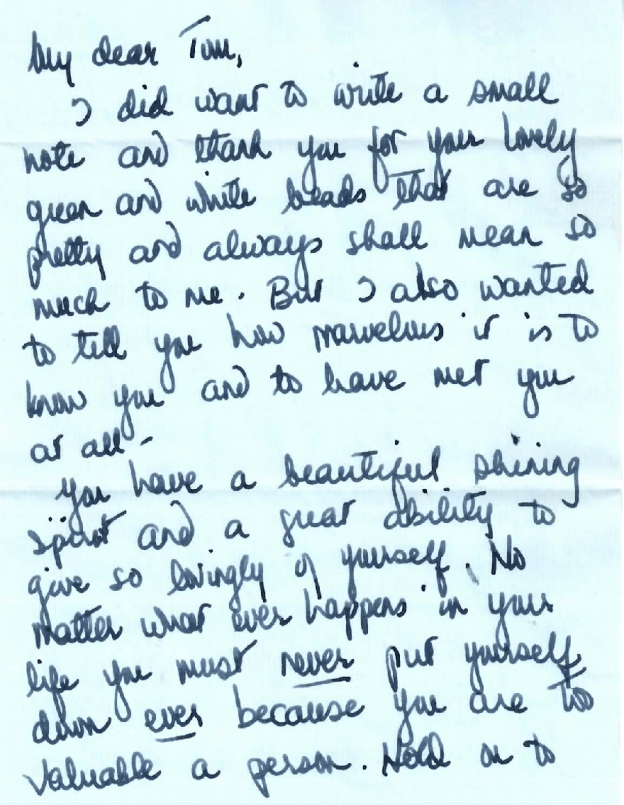 My dear Tom,
I did want to write a small
note and thank you for your lovely
green and white beads that are so
pretty and always shall mean so
much to me. But I also wanted
to tell you how marvelous it is to
know you and to have met you
at all -
You have a beautiful shining
spirit and a great ability to
give so lovingly of yourself. No
matter what ever happens in your
life you must never put yourself
down ever because you are too
valuable a person. Hold on to